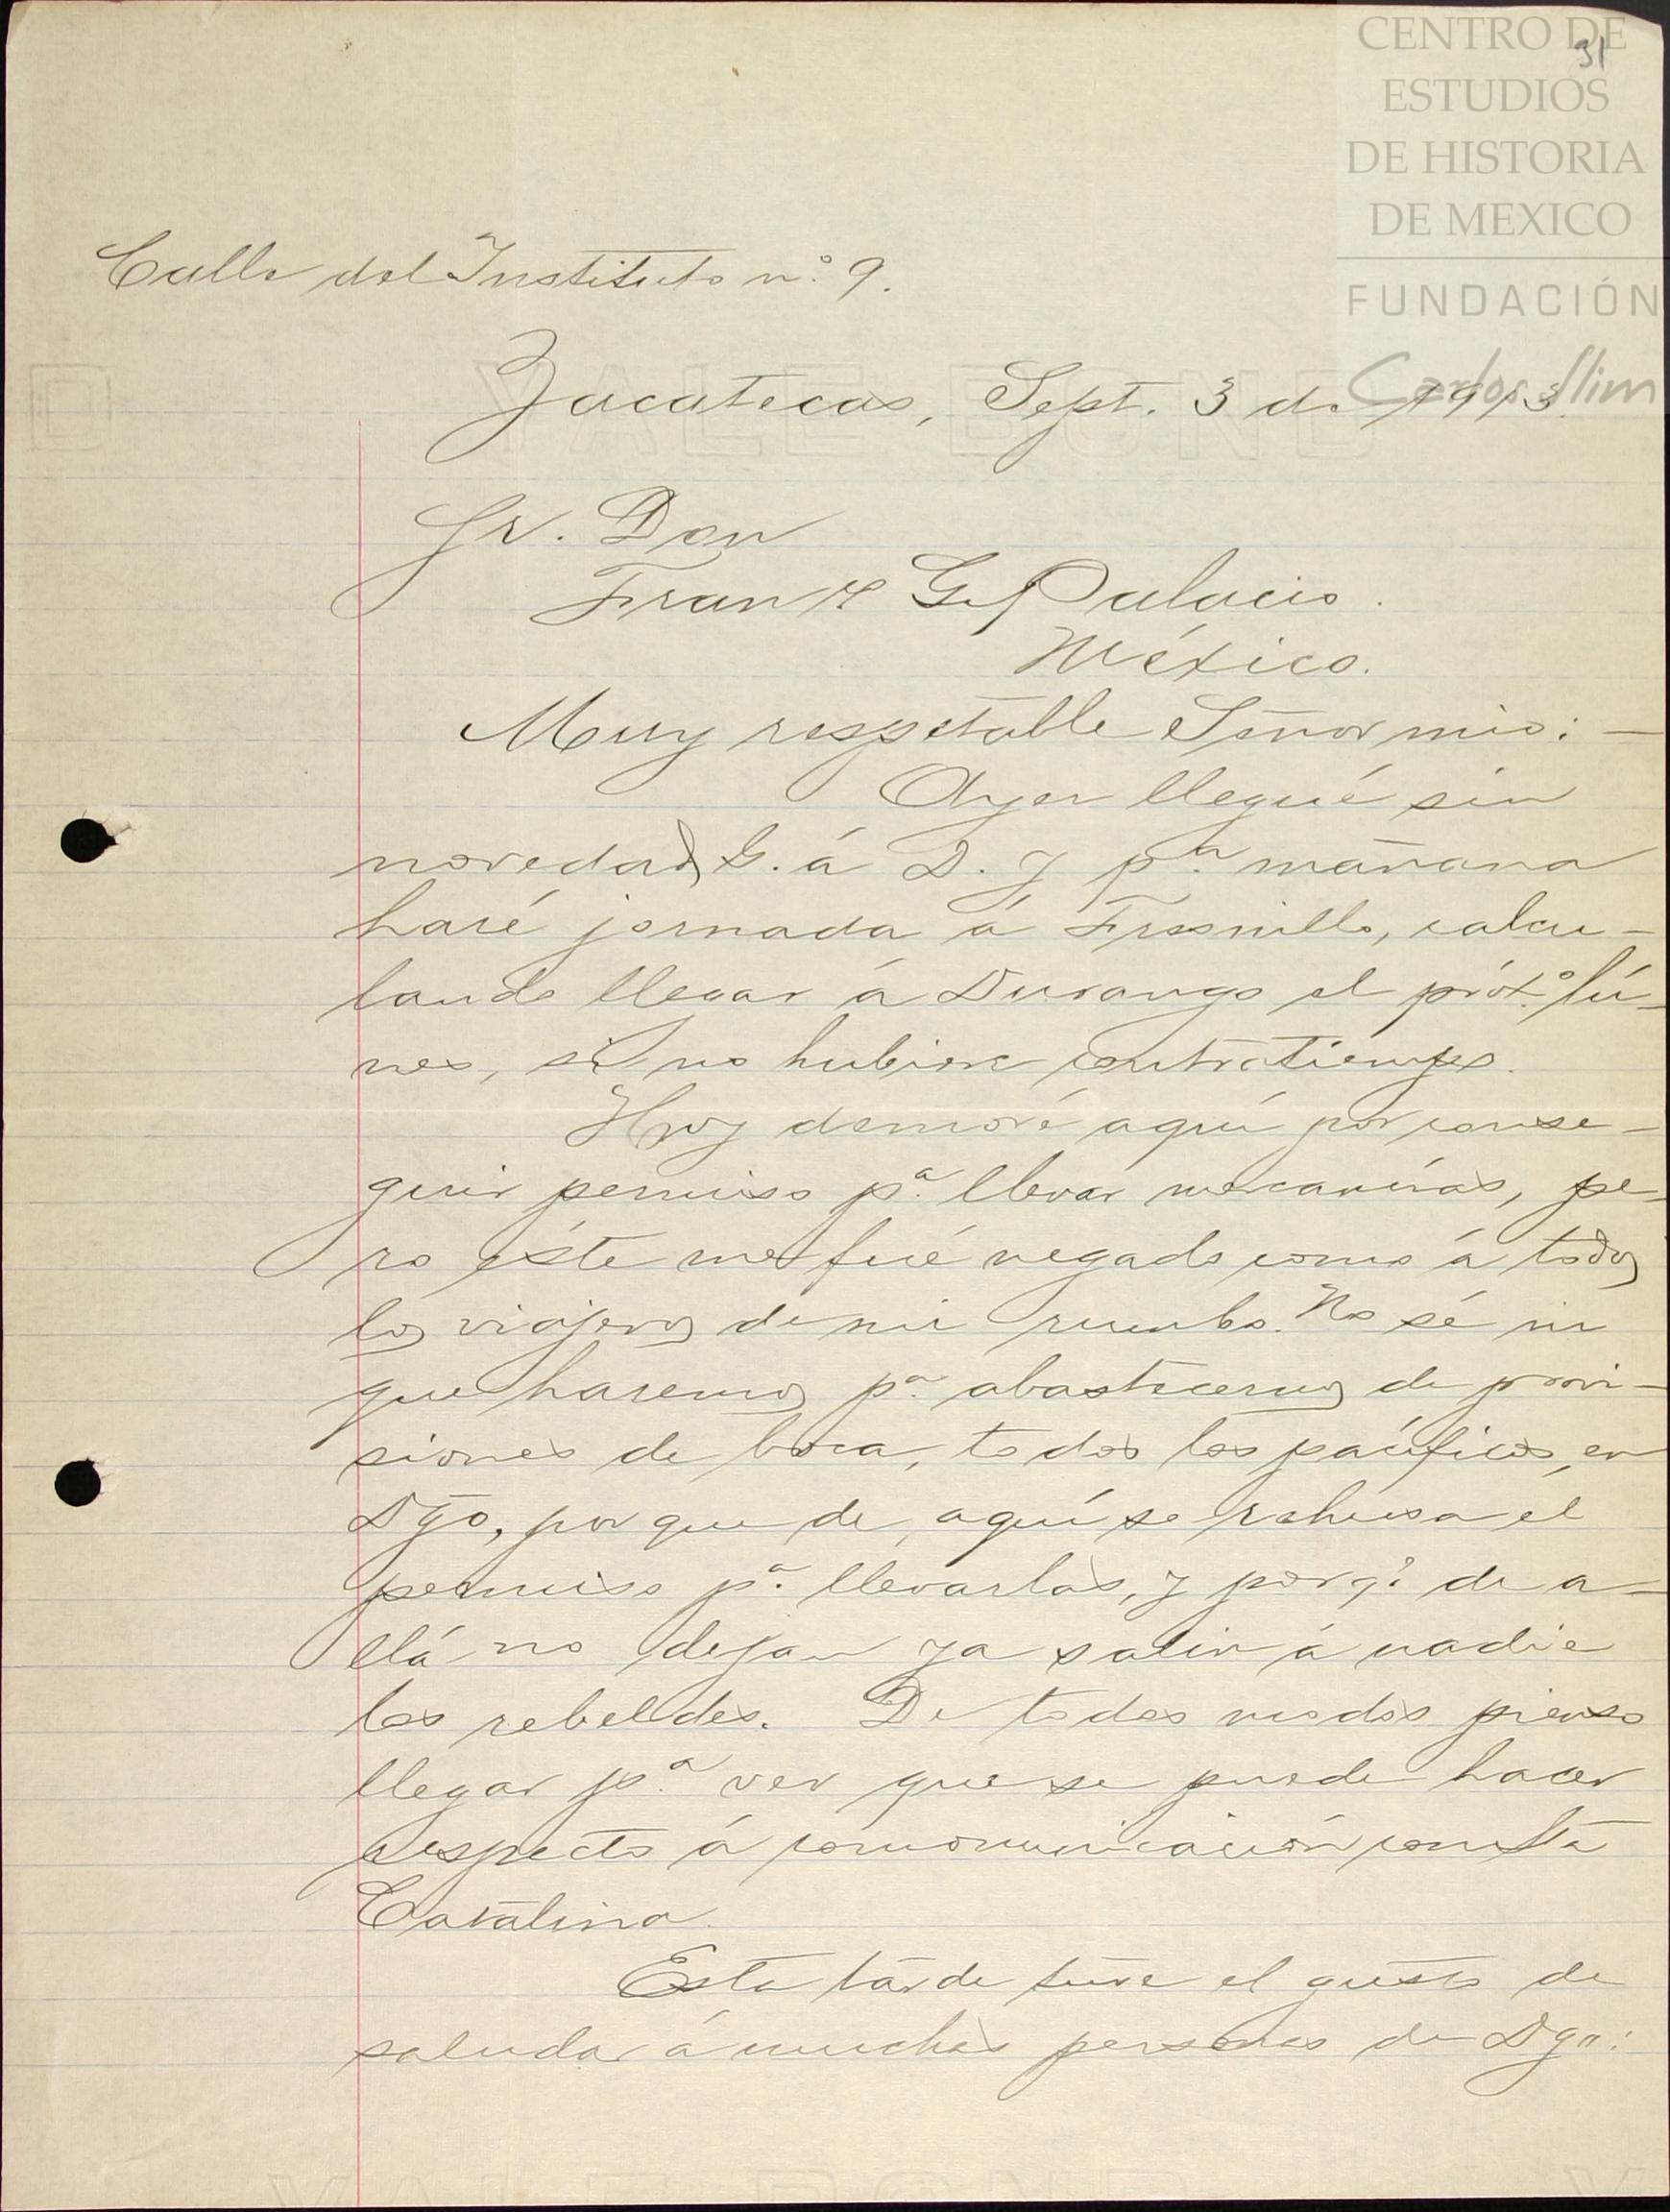 CENTRO DE
ESTUDIOS
DE HISTORIA
DE MEXICO
FUNDACIÓN
Carlos Slim
31
Calle del Instituto n.° 9.
Zacatecas, Sept. 3 de 1913.
Sr. Don
Fran G. Palacio.
México.
Muy respetable Señor mio: —
Ayer llegué sin
novedad G. á D. y p.ª mañana
haré jornada á Fresnillo, calcu-
lando llegar á Durango el próx.° lú-
nes, si no hubiere contratiempo.
Hoy demoré aquí por conse-
guir permiso p.ª llevar mercancías, pe-
ro éste me fué negado como á todos
los viajeros de mi rumbo. No sé ni
que haremos p.ª abastecernos de provi-
siones de boca, todos los pacíficos, en
Dgo, por que de aquí se rehusa el
permiso p.ª llevarlas, y porq.e de a-
llá no dejan ya salir á nadie
los rebeldes. De todos modos pienso
llegar p.ª ver que se puede hacer
respecto á comonunicación con Sta
Catalina.
Esta tarde tuve el gusto de
saludar á muchas personas de Dgo:
YALE BOND
YALE BOND